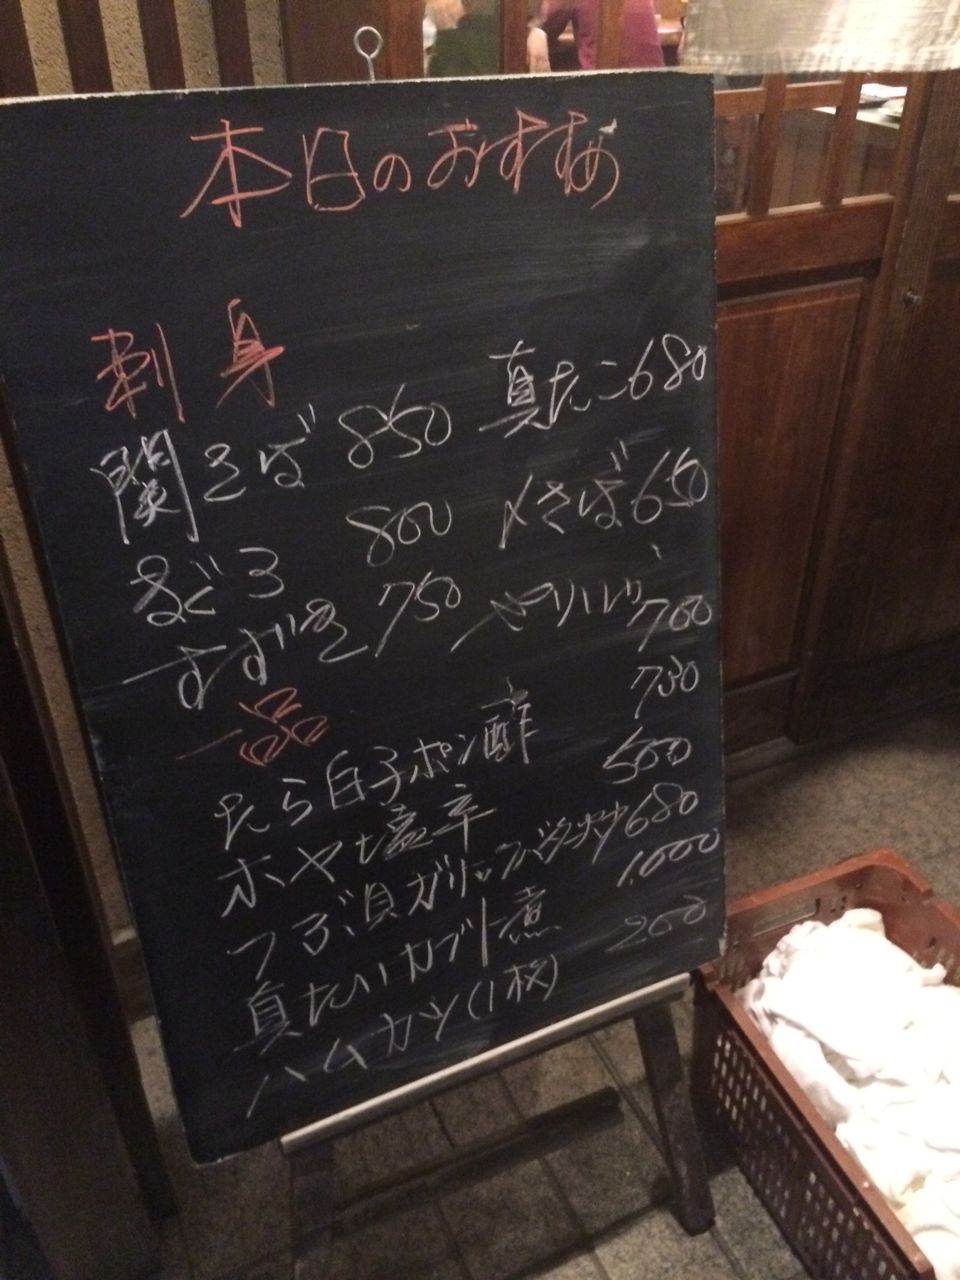 本日のおすすめ
刺身
関さば 850
まぐろ 800
すずき 750
真たこ 680
〆さば 650
やりいか 700
一品
たら白子ポン酢 730
ホヤ塩辛 500
つぶ貝ガーリックバター炒め 680
真たいカブト煮 1,000
ハムカツ(1枚) 200